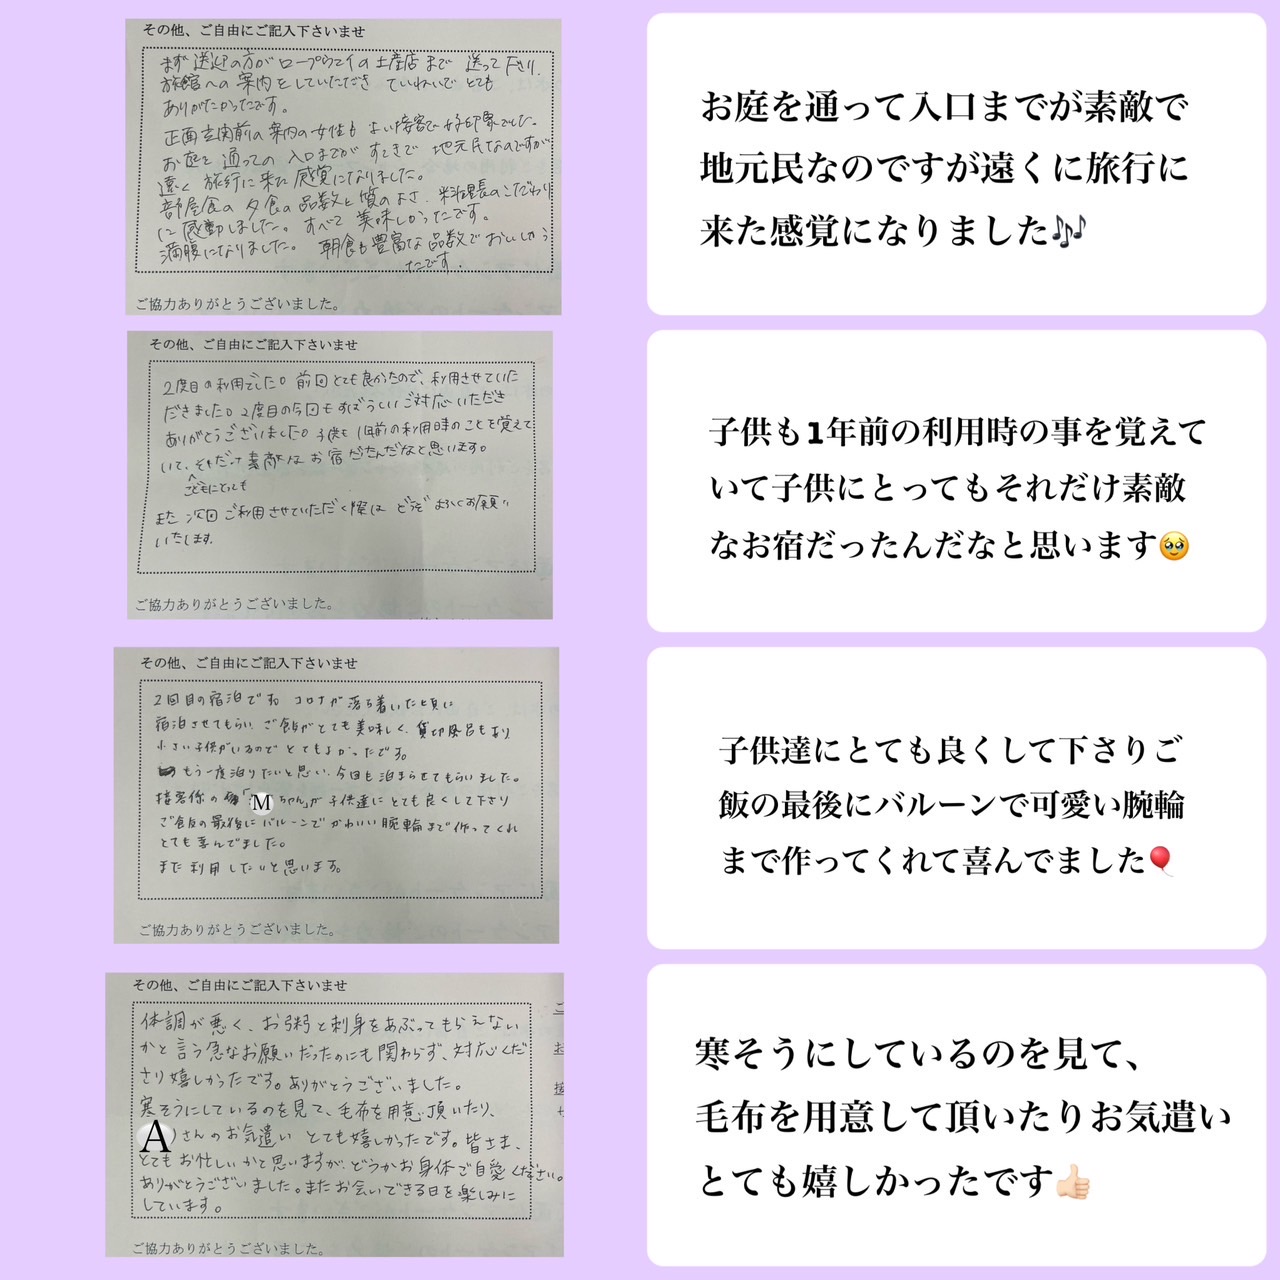 その他、ご自由にご記入下さいませ
まず送迎の方がロープウェイの土産店まで 送って下さり、
旅館への案内をしていただき ていねいで とても
ありがたかったです。
正面玄関前の案内の女性も よい接客で好印象でした。
お庭を 通っての 入口までが すてきで 地元民なのですが
遠く 旅行に来た感覚になりました。
部屋食の 夕食の品数と質のよさ、料理長のこだわり
に感動しました。すべて 美味しかったです。
満腹になりました。 朝食も豊富な品数で おいしかっ
たです。
ご協力ありがとうございました。
お庭を通って入口までが素敵で
地元民なのですが遠くに旅行に
来た感覚になりました🎶
その他、ご自由にご記入下さいませ
2度目の利用でした。前回とても良かったので、利用させていた
だきました。2度目の今回もすばらしいご対応いただき
ありがとうございました。子供も1年前の利用時のことを覚えて
いて、それだけ素敵なお宿だったんだなと思います。
こどもにとっても
また 次回ご利用させていただく際は どうぞよろしくお願い
いたします。
ご協力ありがとうございました。
子供も1年前の利用時の事を覚えて
いて子供にとってもそれだけ素敵
なお宿だったんだなと思います🥹
その他、ご自由にご記入下さいませ
2回目の宿泊です。コロナが落ち着いた頃に
宿泊させてもらい、ご飯がとても美味しく、貸切風呂もあり
小さい子供がいるのでとてもよかったです。
もう一度泊りたいと思い、今回も泊まらせてもらいました。
接客係の「Mちゃん」が子供達にとても良くして下さり
ご飯の最後にバルーンでかわいい腕輪まで作ってくれ
とても喜んでました。
また利用したいと思います。
ご協力ありがとうございました。
子供達にとても良くして下さりご
飯の最後にバルーンで可愛い腕輪
まで作ってくれて喜んでました🎈
その他、ご自由にご記入下さいませ
体調が悪く、お粥と刺身をあぶってもらえない
かと言う急なお願いだったのにも関わらず、対応くだ
さり嬉しかったです。ありがとうございました。
寒そうにしているのを見て、毛布を用意頂いたり、
Aさんのお気遣い とても嬉しかったです。皆さま、
とてもお忙しいかと思いますが、どうかお身体ご自愛ください。
ありがとうございました。またお会いできる日を楽しみに
しています。
ご協力ありがとうございました。
寒そうにしているのを見て、
毛布を用意して頂いたりお気遣い
とても嬉しかったです👍🏻